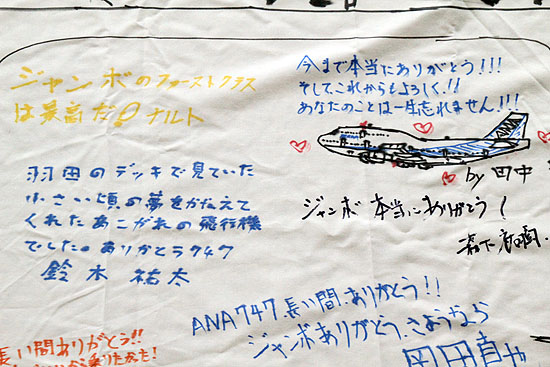 ジャンボのファーストクラス
は最高だ!! ナルト
今まで本当にありがとう!!!
そして、これからもよろしく!!
あなたのことは一生忘れません!!!
ANA
by 田中
羽田のデッキで見ていた
小さい頃の夢をかなえて
くれたあこがれの飛行機
でした。ありがとう747
鈴木 祐太
ジャンボ 本当にありがとう!
森下
ANA747、長い間、ありがとう!!
ジャンボありがとう、さようなら
岡田直也
長い間ありがとう!!
乗りたかも!